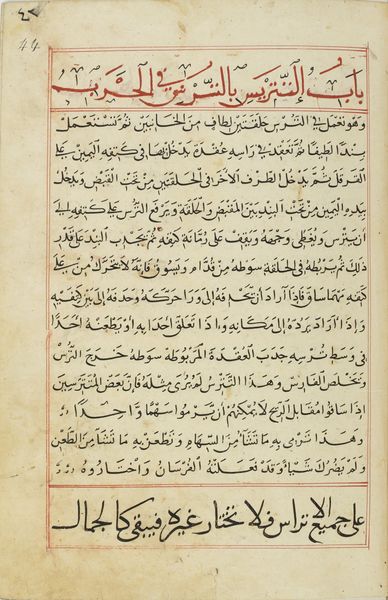 ٤٤
44
باب التتريس بالترس في الحرب
وهو تعمل في الترس حلقتين لطاف من الجانبين ثم تستعمل
بندا لطيفا ثم تعقد في راسه عقدة يدخلها في كتفه اليمين على
الفرقل ثم يدخل الطرف الاخر في الحلقتين من تحت القبض ويدخل
يده اليمين من تحت البند بين المقبض والحلقة ويرفع الترس على كتفه الى
ان يترس ويغطي وجهه ويقف على رمانة كتفه ثم يجذب البند على قدر
ذلك ثم يربطه في الحلقة سوطه من قدام ويسوق فانه لا يتحرك من على
كتفه مهما ساق فاذا أراد أن يتحذفه إلى ورا حركه وحدفه إلى بين كتفيه
وإذا أراد يرده إلى مكانه واذا تعلق احدا به او يطعنه احدا
في وسط ترسه جذب العقدة المربوطة سوطه خرج الترس
وتخلص الفارس وهذا التترس لم يرى مثله فان بعض المتترسين
إذا ساقوا مقابل الريح لا يمكنهم أن يرموا سهما واحدا
وهذا ترمي به ما تشا من السهام وتطعن به ما تشا من الطعن
ولم يضرك شيا وقد فعلته الفرسان واختاروه
على جميع الاتراس فلا تختار غيره فيبقى كالجمال